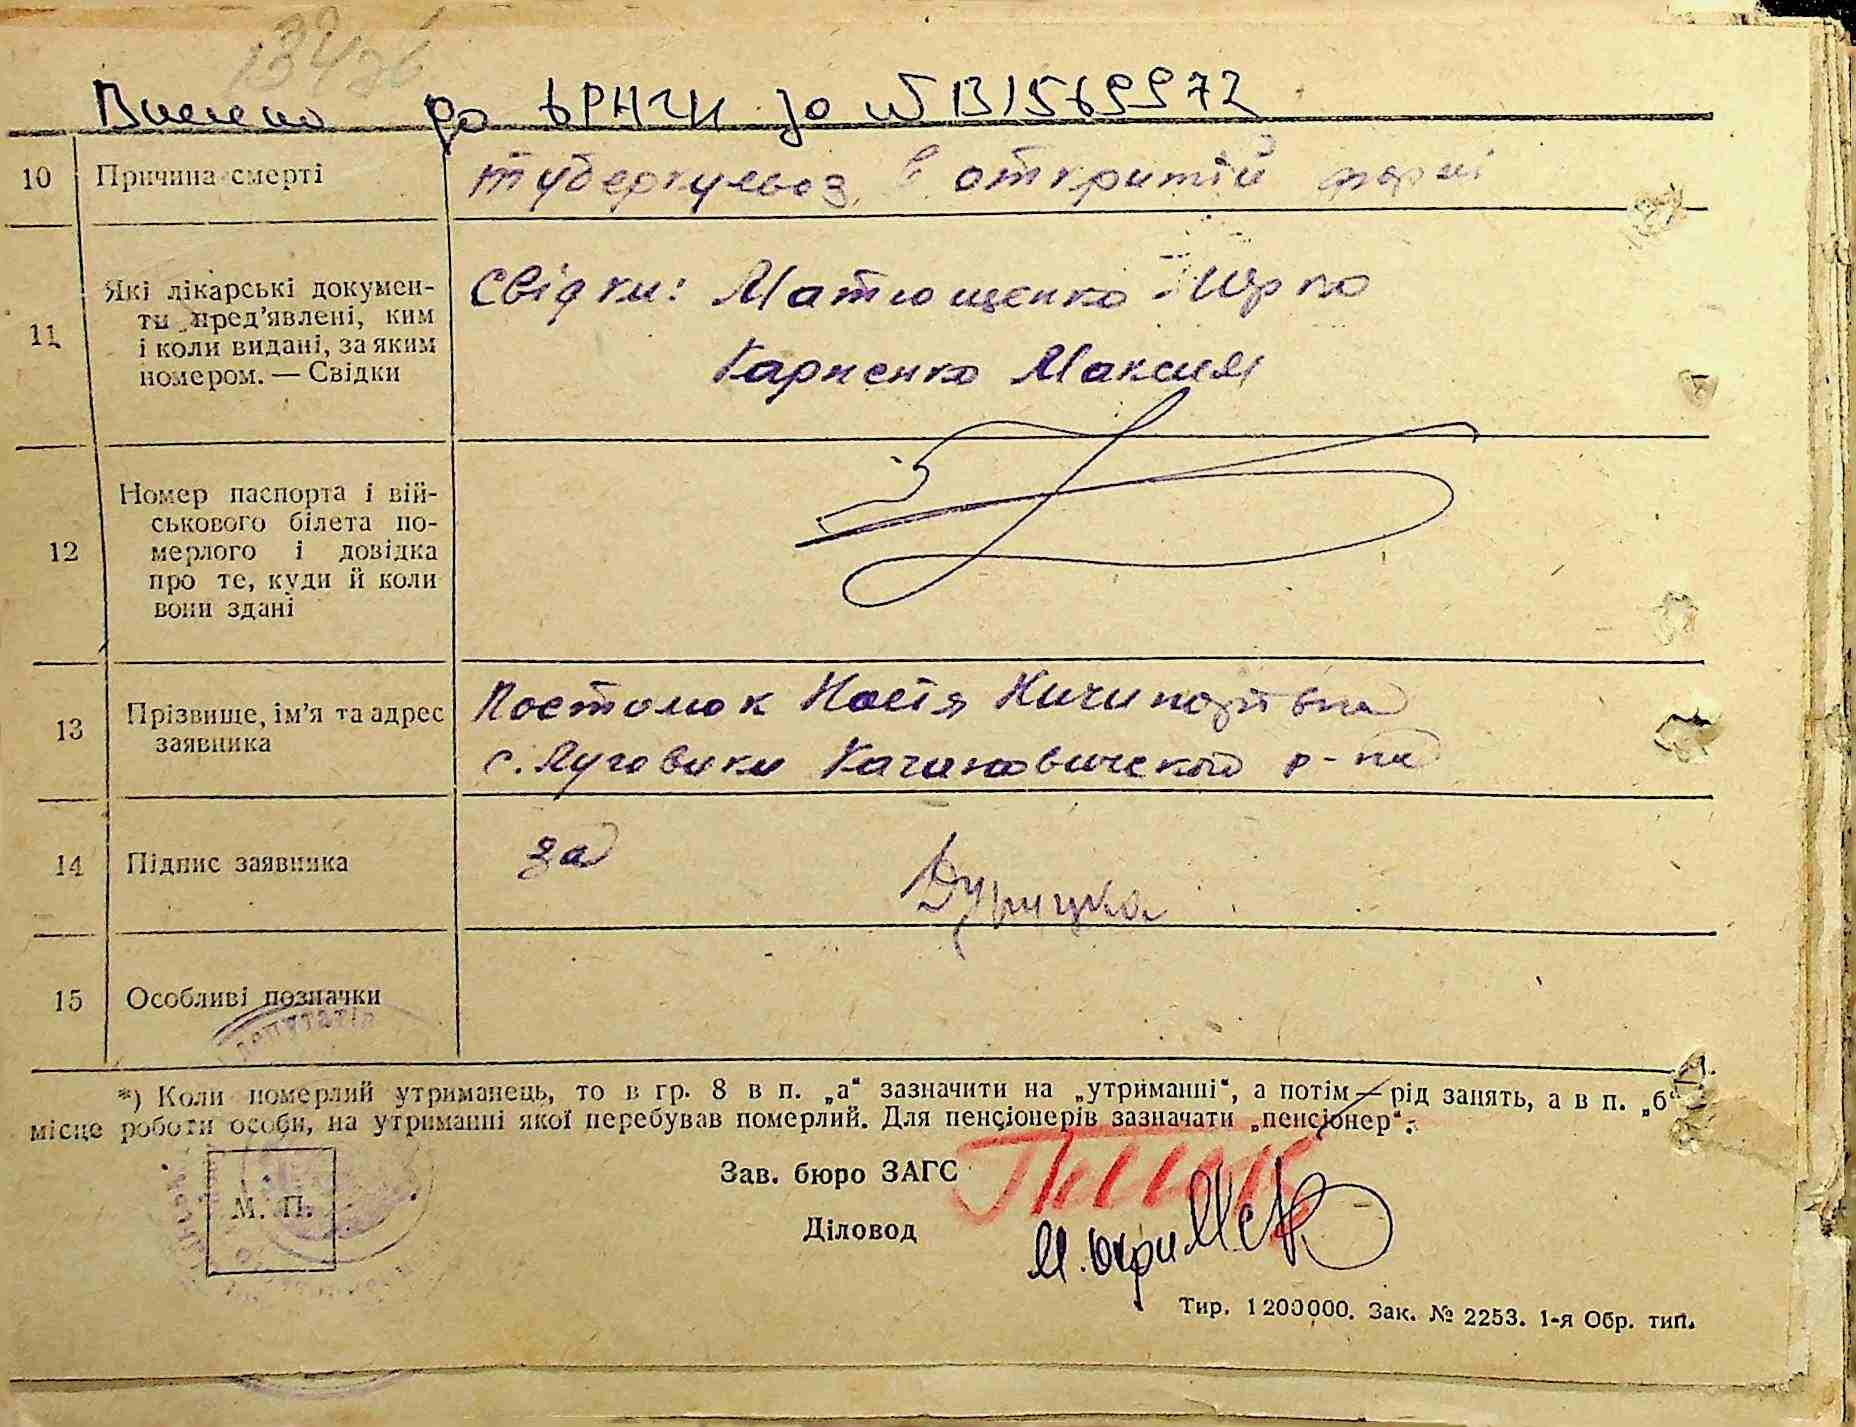 Внесено до ЕРНЧИ за № 131569972
10 Причина смерті туберкульоз в откритій формі
11 Які лікарські докумен-
ти пред'явлені, ким
і коли видані, за яким
номером. — Свідки
Свідки: Матющенко Юрко
Карпенко Максим
12 Номер паспорта і вій-
ськового білета по-
мерлого і довідка
про те, куди й коли
вони здані
13 Прізвище, ім'я та адрес
заявника
Костюк Настя Ничипорівна
с. Луговики Кагановичского р-на
14 Підпис заявника за
15 Особливі позначки
*) Коли померлий утриманець, то в гр. 8 в п. „а“ зазначити на „утриманні“, а потім—рід занять, а в п. „б“
місце роботи особи, на утриманні якої перебував померлий. Для пенсіонерів зазначати „пенсіонер“.
Зав. бюро ЗАГС
М. П.
Діловод
Тир. 1200000. Зак. № 2253. 1-я Обр. тип.